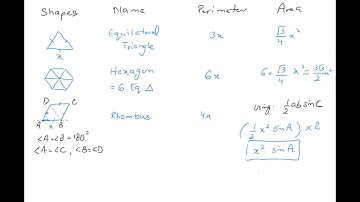 Shapes Name Perimeter Area
x Equilateral Triangle 3x √3/4 x²
Hexagon = 6 Eq △ 6x 6 × √3/4 x² = 3√3/2 x²
D C A x B Rhombus 4x using ½ab sin C
(½ x² sin A) × 2
x² sin A
∠A+∠B=180°
∠A=∠C, ∠B=∠D